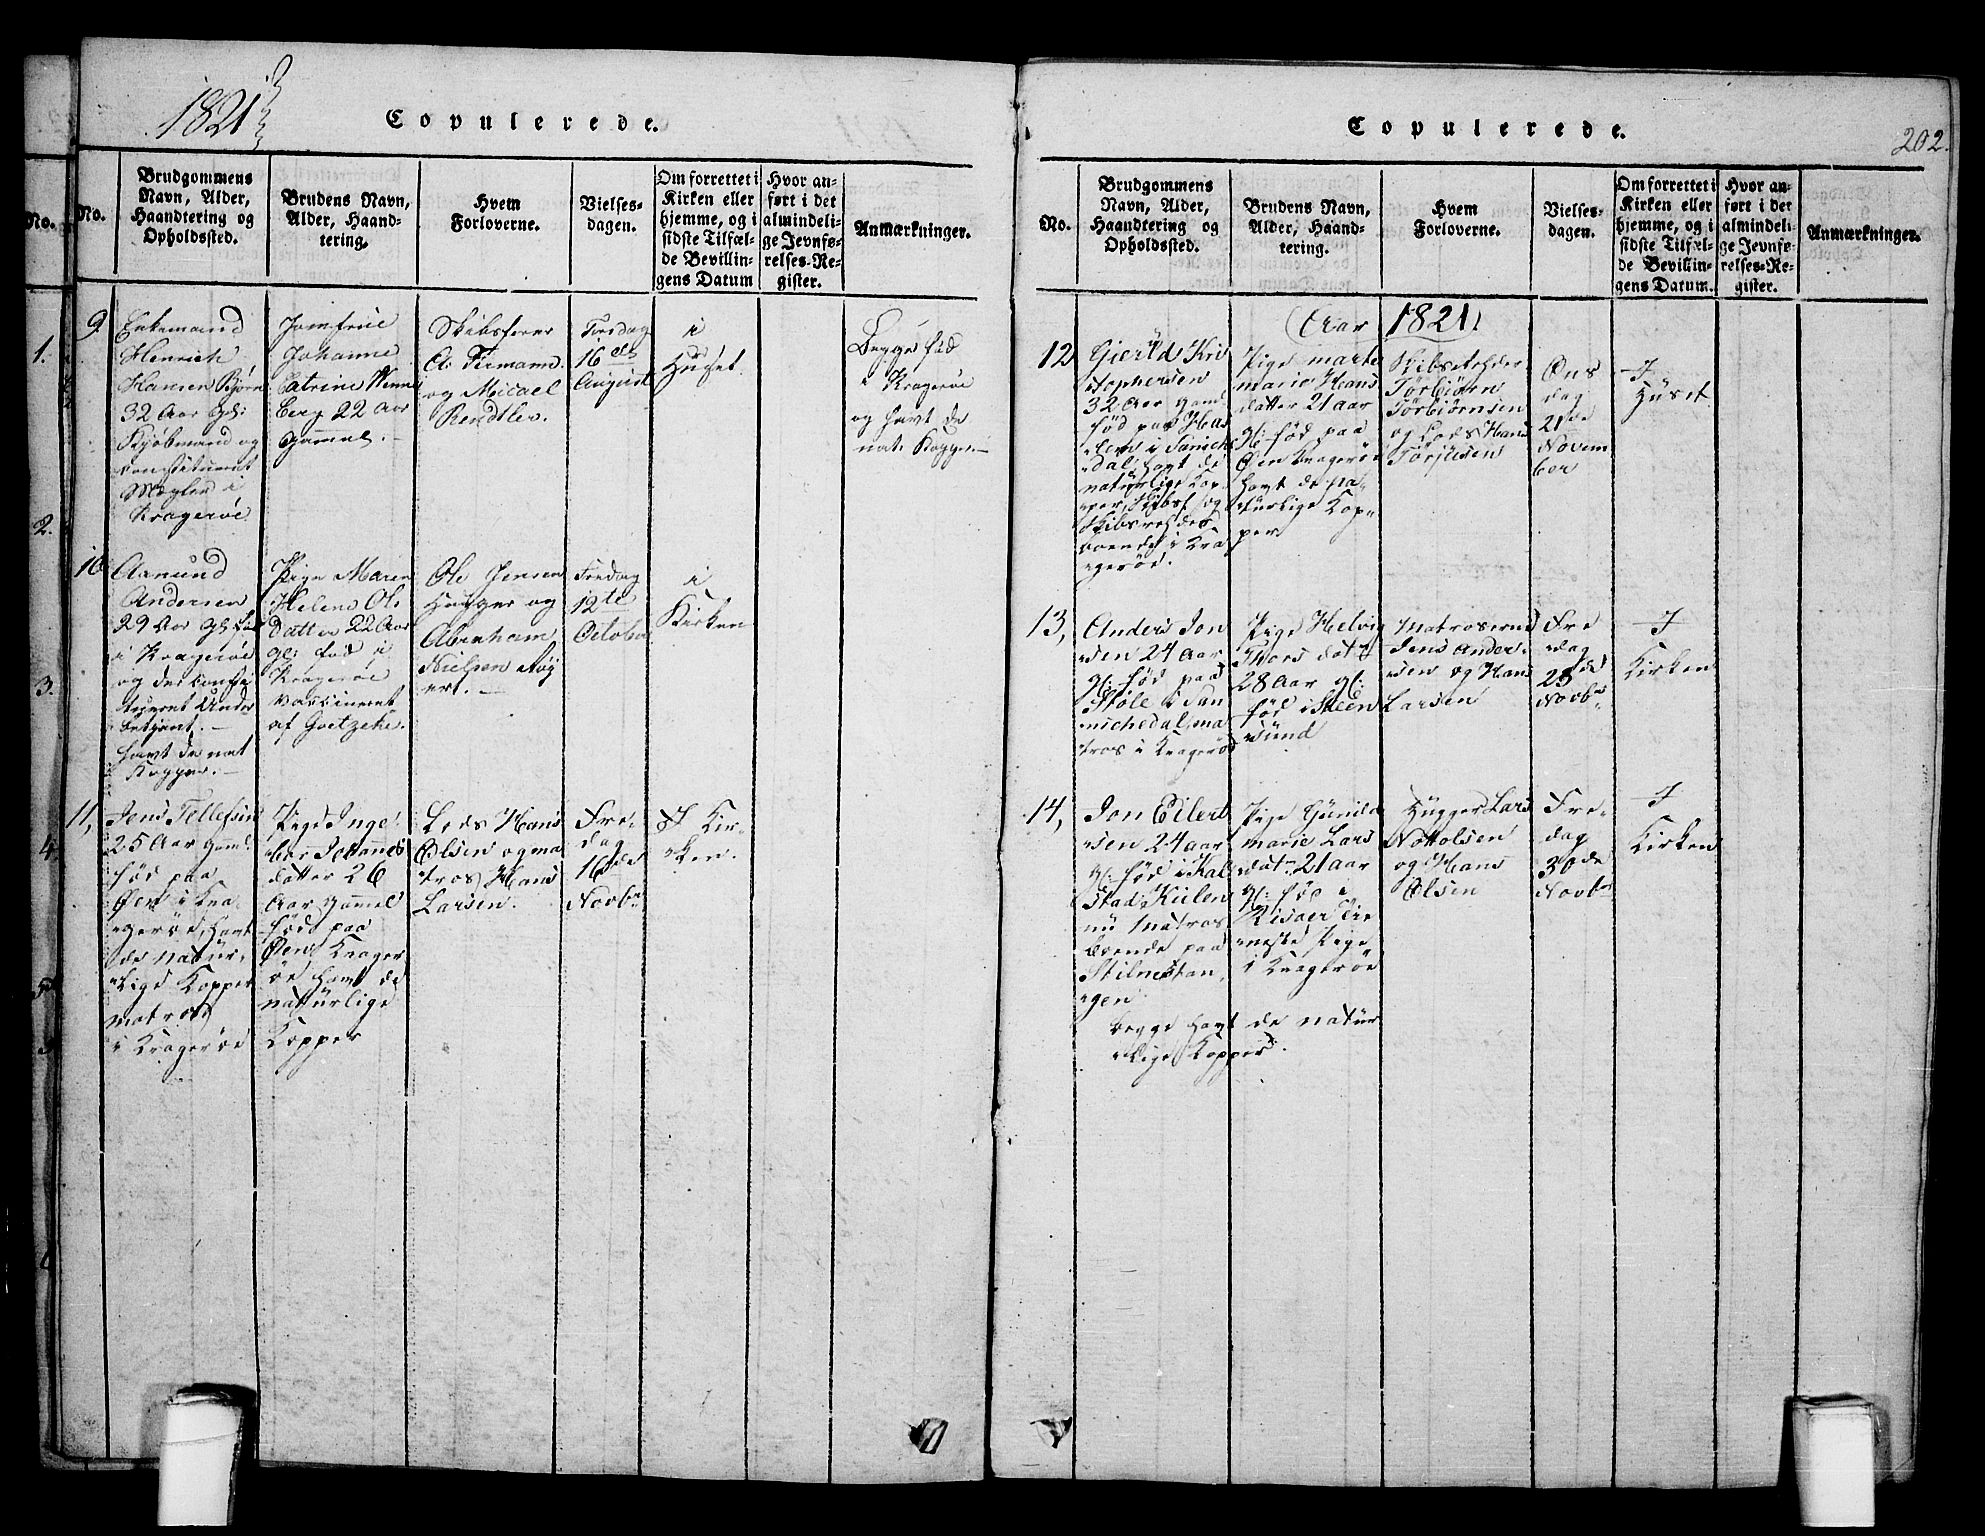 1821
Copulerede.
No.
Brudgommens
Navn, Alder,
Haandtering og
Opholdssted.
Brudens Navn,
Alder, Haand-
tering.
Hvem
Forloverne.
Vielses-
dagen.
Om forrettet i
Kirken eller
hjemme, og i
sidste Tilfæl-
de Bevillin-
gens Datum
Hvor an-
ført i det
almindeli-
ge Jevnfø-
relses-Re-
gister.
Anmærkninger.
9
Enkemand
Henrich
Hansen Bjørn
32 Aar gl:
Kjøbmand og
constitueret
Mægler i
Kragerøe
Jomfrue
Johanne
Catrine Wenne
berg 22 Aar
gammel.-
Skibsfører
A. Firmann
og Micael
Rendtler.
Torsdag
16de
August
i
Huset.
Begge fød
i Kragerøe
og havt de
nat. Kopper.-
10
Aanund
Andersen
29 Aar gl: fød
i Kragerøe
og der consti
tueret Under
betjent.-
havt de nat
Kopper.-
Pige Maren
Helene Ols
datter 22 Aar
gl: fød i
Kragerøe
vaccineret
af Goetzche.
Ole Jensen
Hugger og
Abraham
Nielsen
Fredag
12te
October
i
Kirken
11,
Jens Tellefsen
25 Aar gaml.
fød paa
Øen i Kra
gerøe, havt
de natur.
lige Kopper
matros
i Kragerøe
Pige Inge
bor Johannes
datter 26
Aar gammel
fød paa
Øen Krager
öe havt de
naturlige
Kopper
Lods Hans
Olsen og ma
tros Hans
Larsen.
Fre-
dag
16de
Novbr
I Kir
ken.
Copulerede.
202.
No.
Brudgommens
Navn, Alder,
Haandtering og
Opholdssted.
Brudens Navn,
Alder, Haand-
tering.
Hvem
Forloverne.
Vielses-
dagen.
Om forrettet i
Kirken eller
hjemme, og i
sidste Tilfæl-
de Bevillin-
gens Datum.
Hvor an-
ført i det
almindeli-
ge Jevnfø-
relses-Re-
gister.
Anmærkninger.
Aar 1821
12
Gjerüld Kri
stophersen
32 Aar gaml
fød paa
i Sanich
dal, havt de
naturlige Kop
per, og
Skibsreder
boende i Kra
gerøe.
Pige marte
maria Hans
datter 21 aar
gl: fød paa
Øen Kragerøe
havt de na-
turlige Kop
per
Skibsreder
Torbiørn
Torbiørnsen
og Lods Hans
Torjusen
Ons
dag
21de
Novem
ber
I
Huset
13,
Anders Jon
sen 24 Aar
gl: fød paa
Støle i San
nichedal, ma
tros i Kragerøe
Pige Helvig
Thors datr
28 Aar gl:
fød i Steen
sund
Matroserne
Jens Ander
sen og Hans
Larsen
Fre
dag
23de
Novbr
I
Kirken
14,
Jon Eilert
sen 24 aar
gl: fød i Kal
stad Kiilen
nu matros
boende paa
Stilnestan
gen
Pige Gunild
marie Lars
datr 21 aar
gl: fød i
Risøer Tie
neste Pige
i Kragerøe
begge havt de natur
lige Kopper.
Hugger Lars
Nottolsen
og Hans
Olsen
Fre-
dag
30de
Novbr
I
Kirken
No.
1.
2.
3.
4.
5